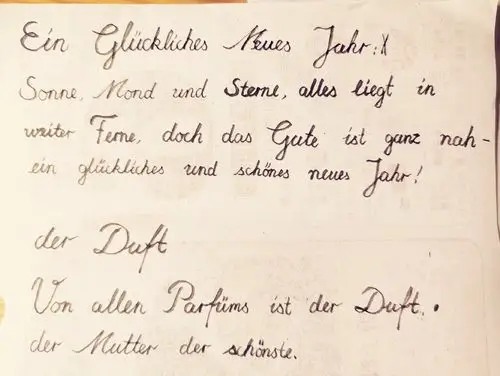 Ein Glückliches Neues Jahr:X
Sonne, Mond und Sterne, alles liegt in
weiter Ferne, doch das Gute ist ganz nah-
ein glückliches und schönes neues Jahr!
der Duft
Von allen Parfüms ist der Duft.
der Mutter der schönste.